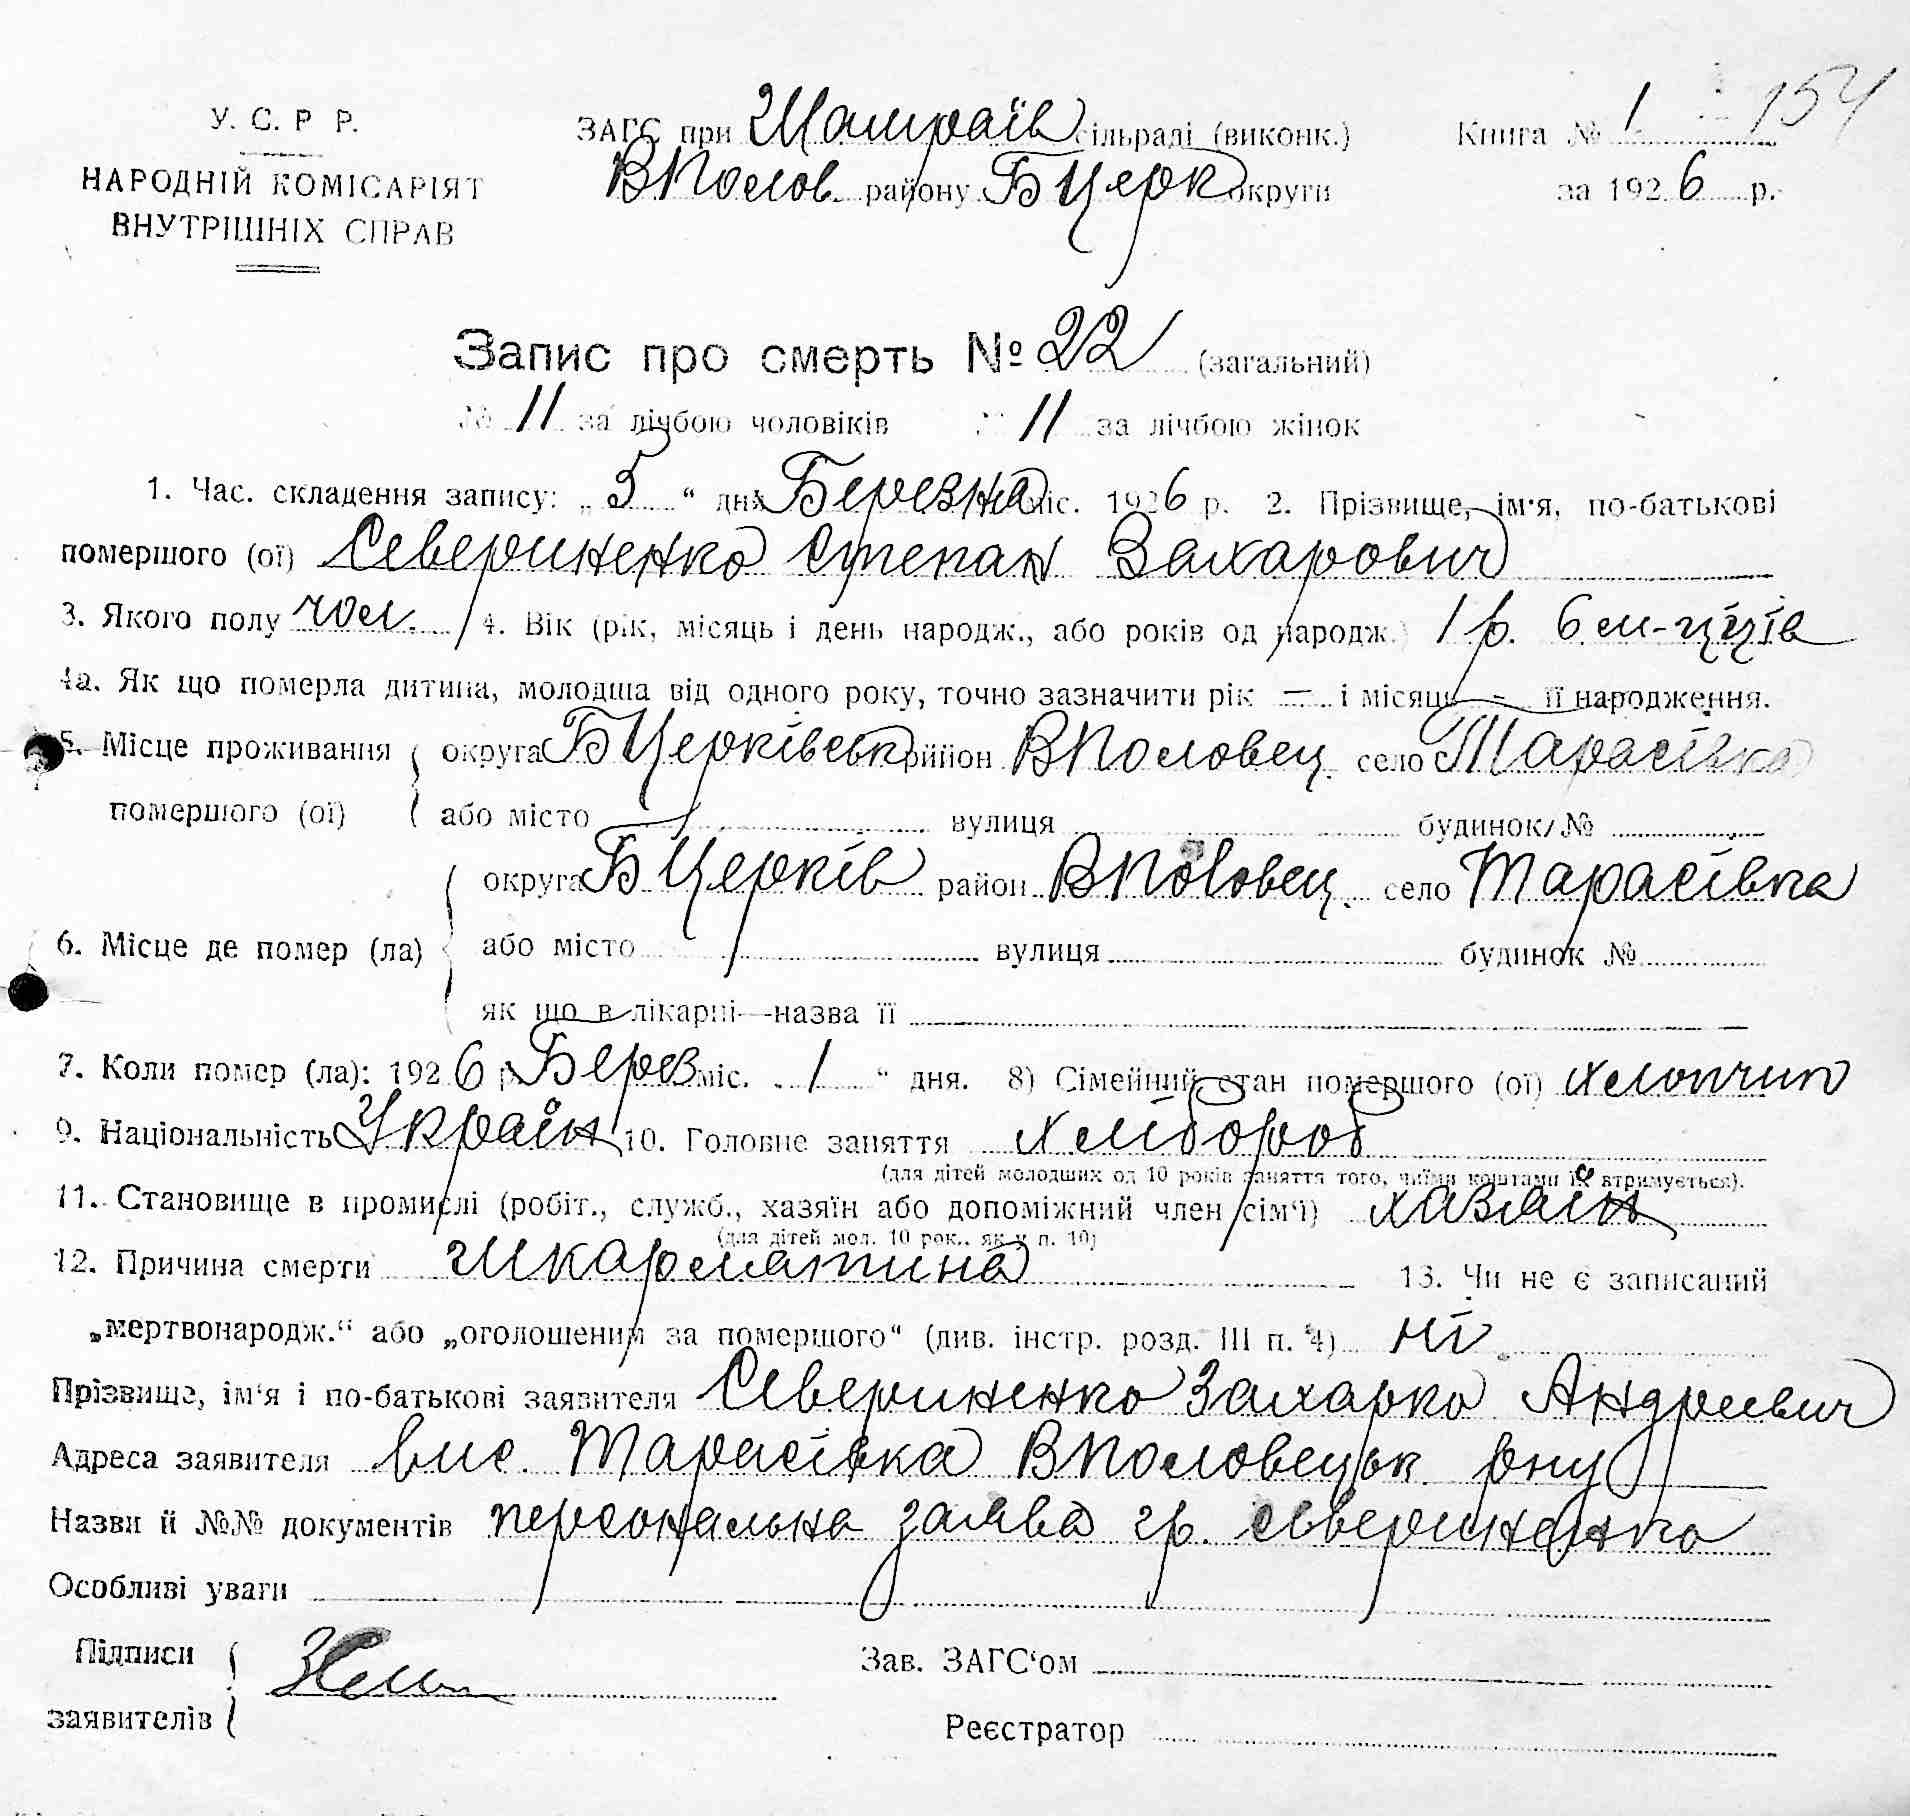 154
У. С. Р Р.
НАРОДНІЙ КОМІСАРІЯТ
ВНУТРІШНІХ СПРАВ
ЗАГС при Шамраїв сільраді (виконк.)
ВПолов. району БЦерк округи
Книга № 1
за 1926 р.
Запис про смерть № 22 (загальний)
№ 11 за лічбою чоловіків № 11 за лічбою жінок
1. Час. складення запису: „5“ дня Березня міс. 1926 р. 2. Прізвище, ім'я, по-батькові
помершого (ої) Севериненко Степан Захарович
3. Якого полу чол. 4. Вік (рік, місяць і день народж., або років од народж.) 1 р. 6 м-ців
4а. Як що померла дитина, молодша від одного року, точно зазначити рік — і місяць - її народження.
5. Місце проживання округа БЦерківськ район ВПоловец. село Тарасівка
помершого (ої) або місто вулиця будинок №
округа БЦерків район ВПоловец. село Тарасівка
6. Місце де помер (ла) або місто вулиця будинок №
як що в лікарні—назва її
7. Коли помер (ла): 1926 р. Берез міс. „1“ дня. 8) Сімейний стан помершого (ої) хлопчик
9. Національність Україн 10. Головне заняття хлібороб
(для дітей молодших од 10 років заняття того, чиїми коштами їх втримується).
11. Становище в промислі (робіт., служб., хазяїн або допоміжний член сім'ї) хазяїн
(для дітей мол. 10 рок., як у п. 10)
12. Причина смерти шкарлатина 13. Чи не є записаний
„мертвонародж.“ або „оголошеним за помершого“ (див. інстр. розд. III п. 4) ні
Прізвище, ім'я і по-батькові заявителя Севериненко Захарко Андреєвич
Адреса заявителя вис. Тарасівка ВПоловецьк рну
Назви й №№ документів персональна заява гр. Севериненка
Особливі уваги
Підписи
заявителів
Зав. ЗАГС'ом
Реєстратор